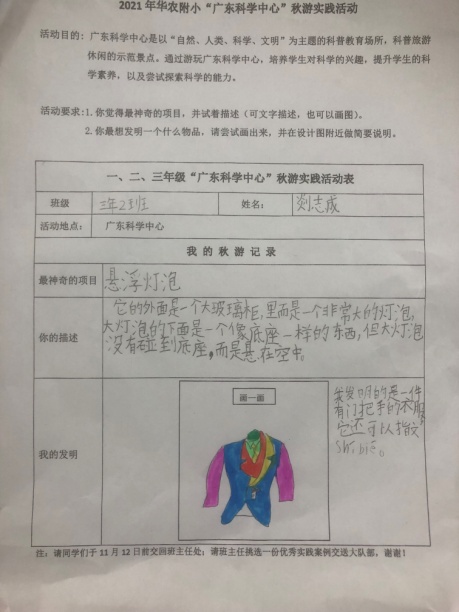 2021年华农附小“广东科学中心”秋游实践活动
活动目的：广东科学中心是以“自然、人类、科学、文明”为主题的科普教育场所，科普旅游
休闲的示范景点。通过游玩广东科学中心，培养学生对科学的兴趣，提升学生的科
学素养，以及尝试探索科学的能力。
活动要求:1.你觉得最神奇的项目，并试着描述（可文字描述，也可以画图）。
2.你最想发明一个什么物品，请尝试画出来，并在设计图附近做简要说明。
一、二、三年级“广东科学中心”秋游实践活动表
班级 三年2班 姓名： 刘志成
活动地点： 广东科学中心
我的秋游记录
最神奇的项目 悬浮灯泡
你的描述
它的外面是一个大玻璃柜,里面是一个非常大的灯泡,
大灯泡的下面是一个像底座一样的东西,但大灯泡
没有碰到底座,而是悬在空中。
我的发明
画一画
我发明的是一件
有门把手的衣服
它还可以指纹
shí bié。
注：请同学们于11月12日前交回班主任处；请班主任挑选一份优秀实践案例交送大队部，谢谢！